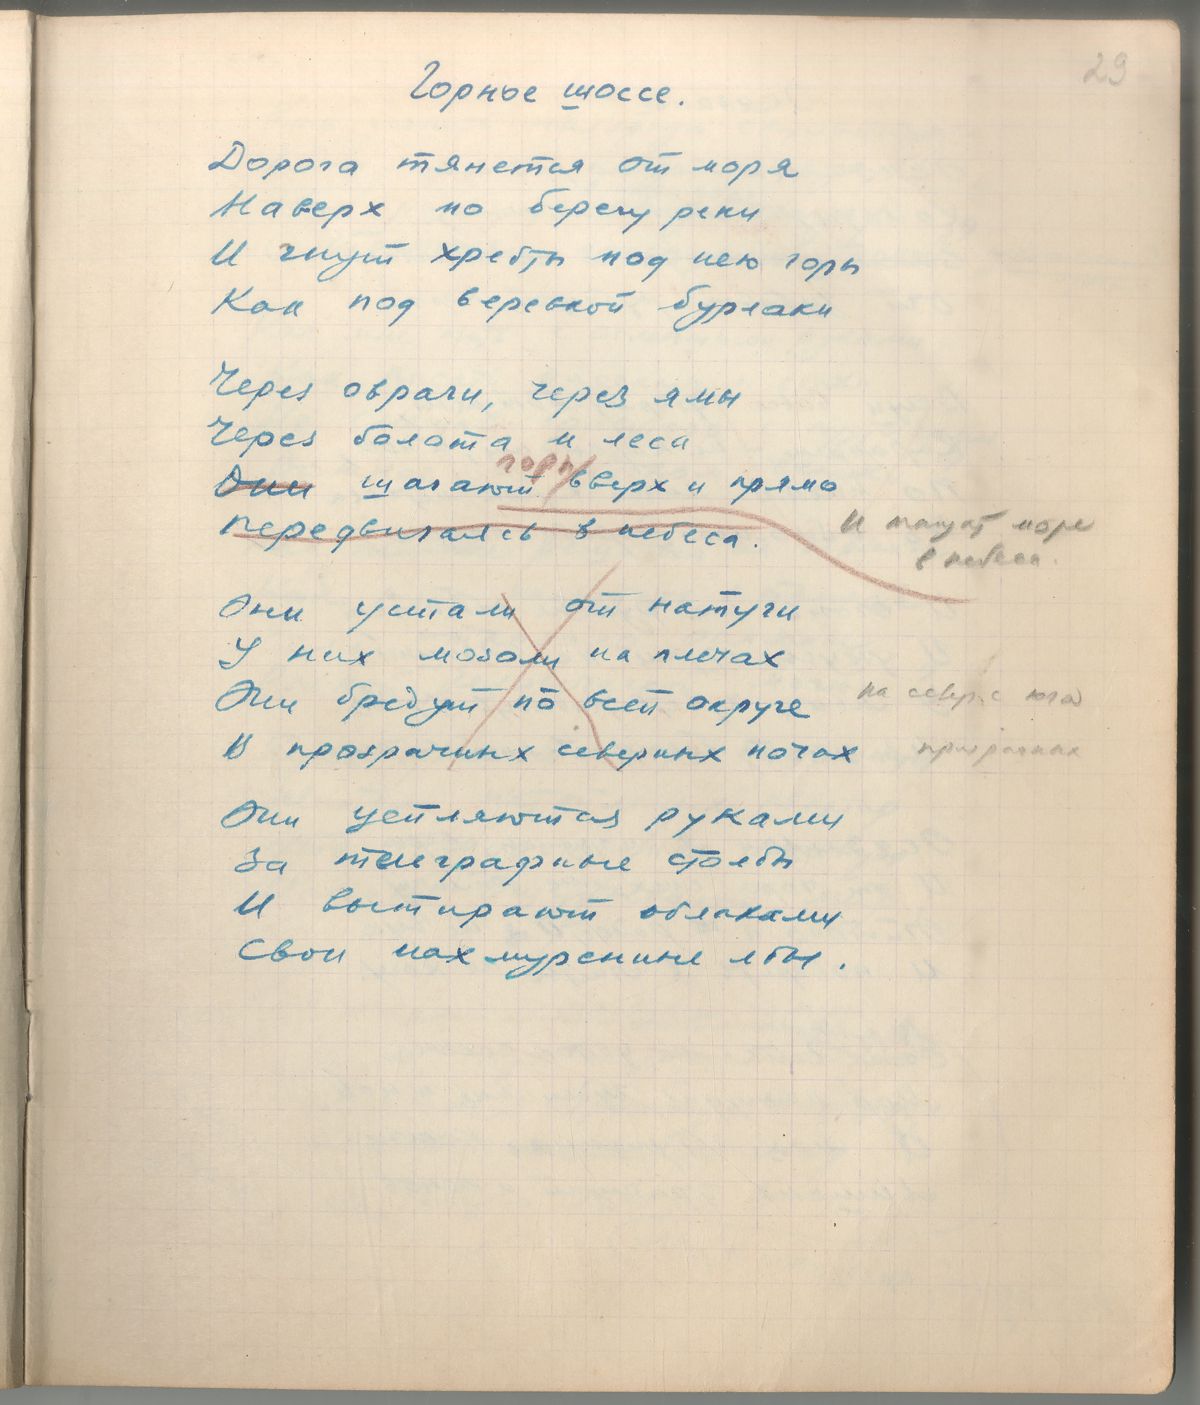 29
Горное шоссе.
Дорога тянется от моря
Наверх по берегу реки
И гнут хребты под нею горы
Как под веревкой бурлаки
Через овраги, через ямы
Через болота и леса
горы
Они шагают вверх и прямо
Передвигаясь в небеса.
И тащат море
в небеса.
Они устали от натуги
У них мозоли на плечах
Они бредут по всей округе
на север с юга
В прозрачных северных ночах
призрачных
Они цепляются руками
За телеграфные столбы
И вытирают облаками
Свои нахмуренные лбы.